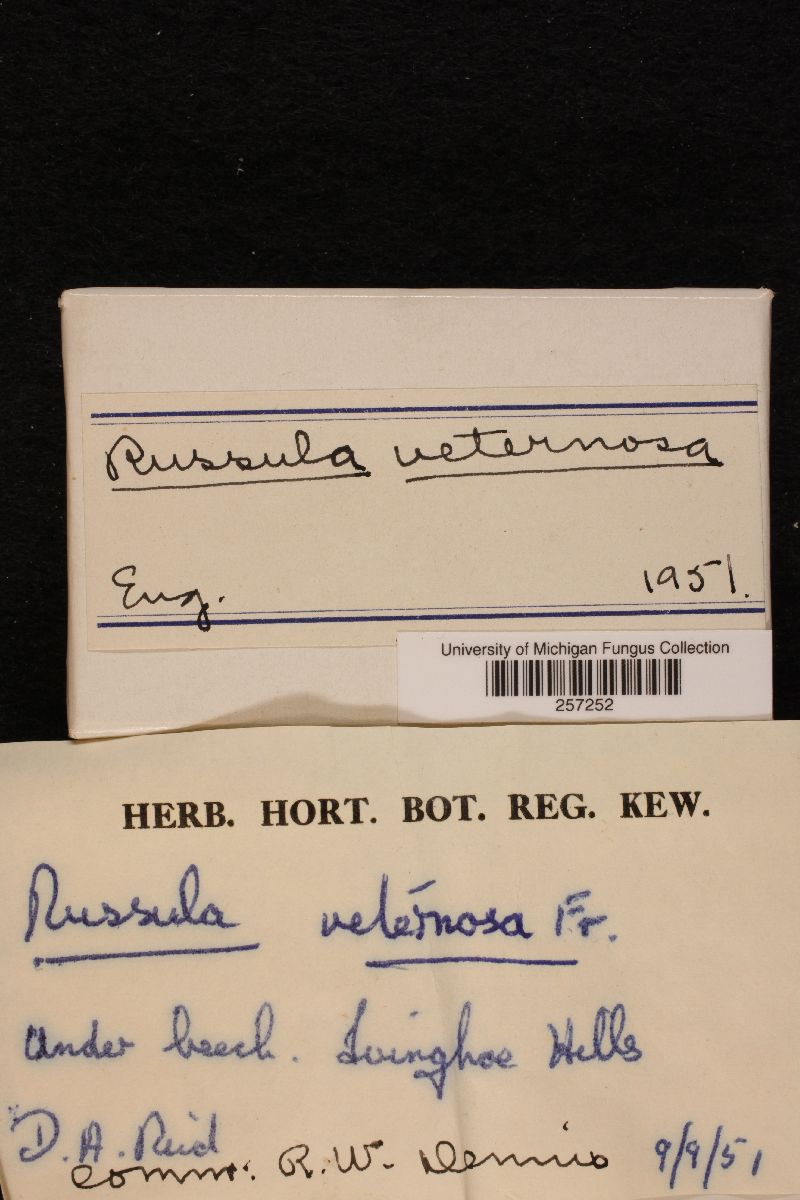 Russula veternosa
Eng. 1951.
University of Michigan Fungus Collection
257252
HERB. HORT. BOT. REG. KEW.
Russula veternosa Fr.
Under beech. Ivinghoe Hills
D. A. Reid
comm. R. W. Dennis 9/9/51